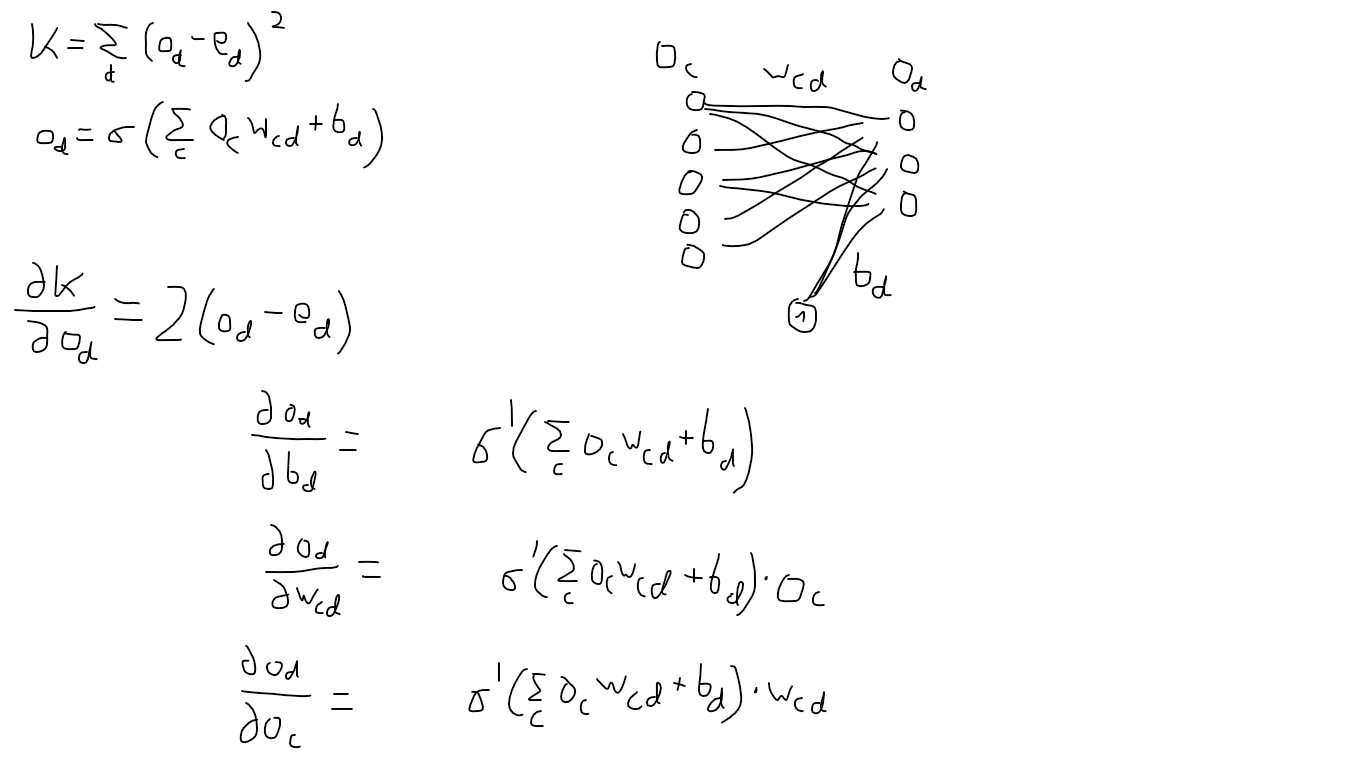 K = Σ_d (o_d - e_d)^2
o_d = σ(Σ_c o_c w_cd + b_d)
o_c w_cd o_d
b_d
1
∂K/∂o_d = 2(o_d - e_d)
∂o_d/∂b_d = σ'(Σ_c o_c w_cd + b_d)
∂o_d/∂w_cd = σ'(Σ_c o_c w_cd + b_d) · o_c
∂o_d/∂o_c = σ'(Σ_c o_c w_cd + b_d) · w_cd